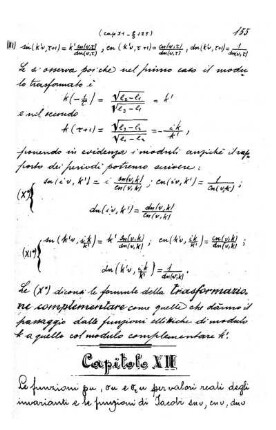 (cap 31 - § 155) 155
sn(k'v, τ+1) = k' sn(v,τ)/dn(v,τ), cn(k'v, τ+1) = cn(v,τ)/dn(v,τ), dn(k'v, τ+1) = 1/dn(v,τ)
Se si osserva poi che nel primo caso il modu
lo trasformato è
k(-1/τ) = √e₂-e₁ / √e₃-e₁ = k'
e nel secondo
k(τ+1) = = - ik/k' ,
ponendo in evidenza i moduli anziché il rap
porto dei periodi potremo scrivere:
(X') sn(iv, k') = i sn(v,k)/cn(v,k) ; cn(iv, k') = 1/cn(v,k) ;
dn(iv, k') = dn(v,k)/cn(v,k)
(XI') sn(k'v, ik/k') = k' sn(v,k)/dn(v,k) ; cn(k'v, ik/k') = cn(v,k)/dn(v,k) ;
dn(k'v, ik/k') = 1/dn(v,k) .
Le (X') diconsi le formule della trasformazio
ne complementare come quelle che dànno il
passaggio dalle funzioni ellittiche di modulo
k a quelle col modulo complementare k'.
Capitolo XII
Le funzioni pu, σu e σᵢu per valori reali degli
invarianti e le funzioni di Jacobi snv, cnv, dnv